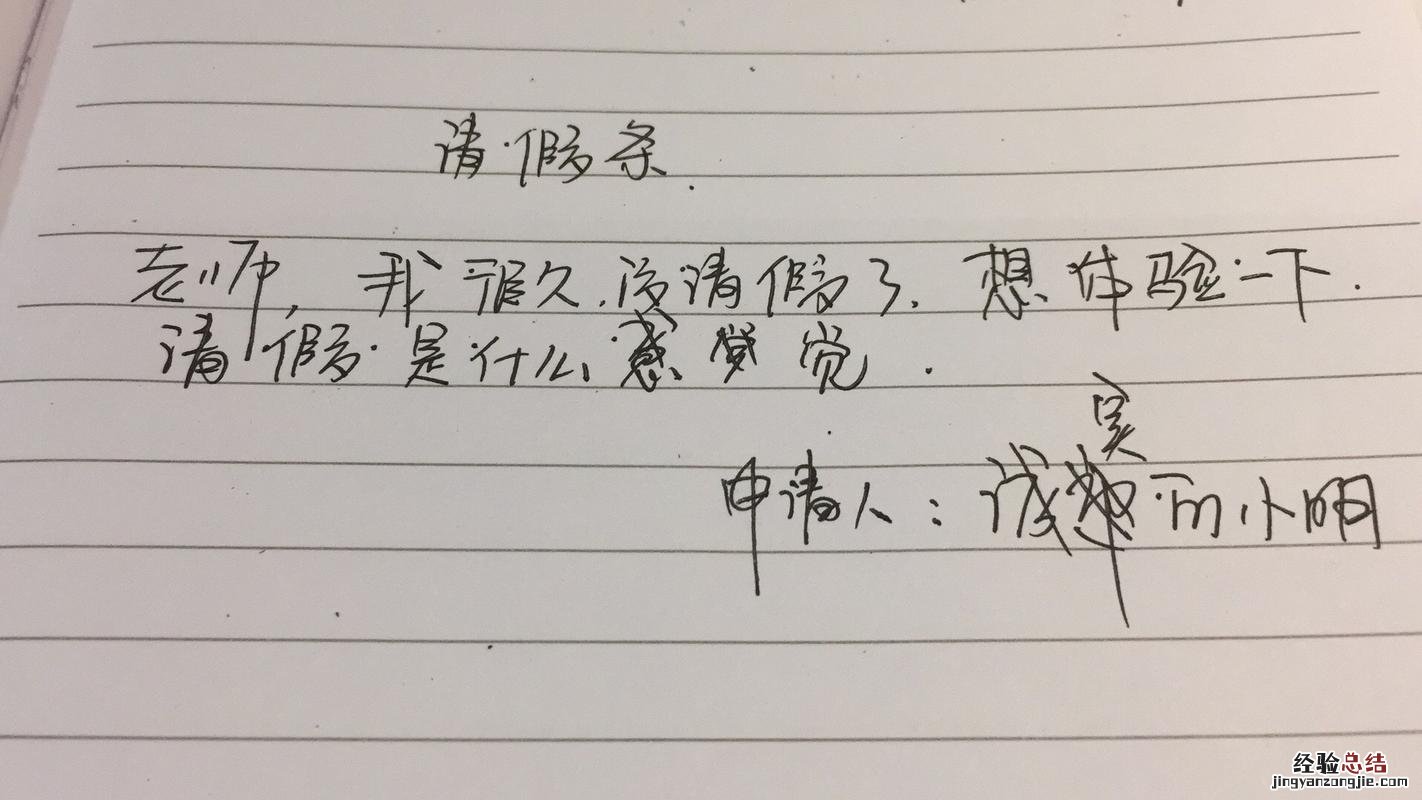 请假条.
老师, 我很久没请假了. 想体验一下.
请假是什么感觉.
实
申请人: 诚的小明
经验总结
jingyanzongjie.com